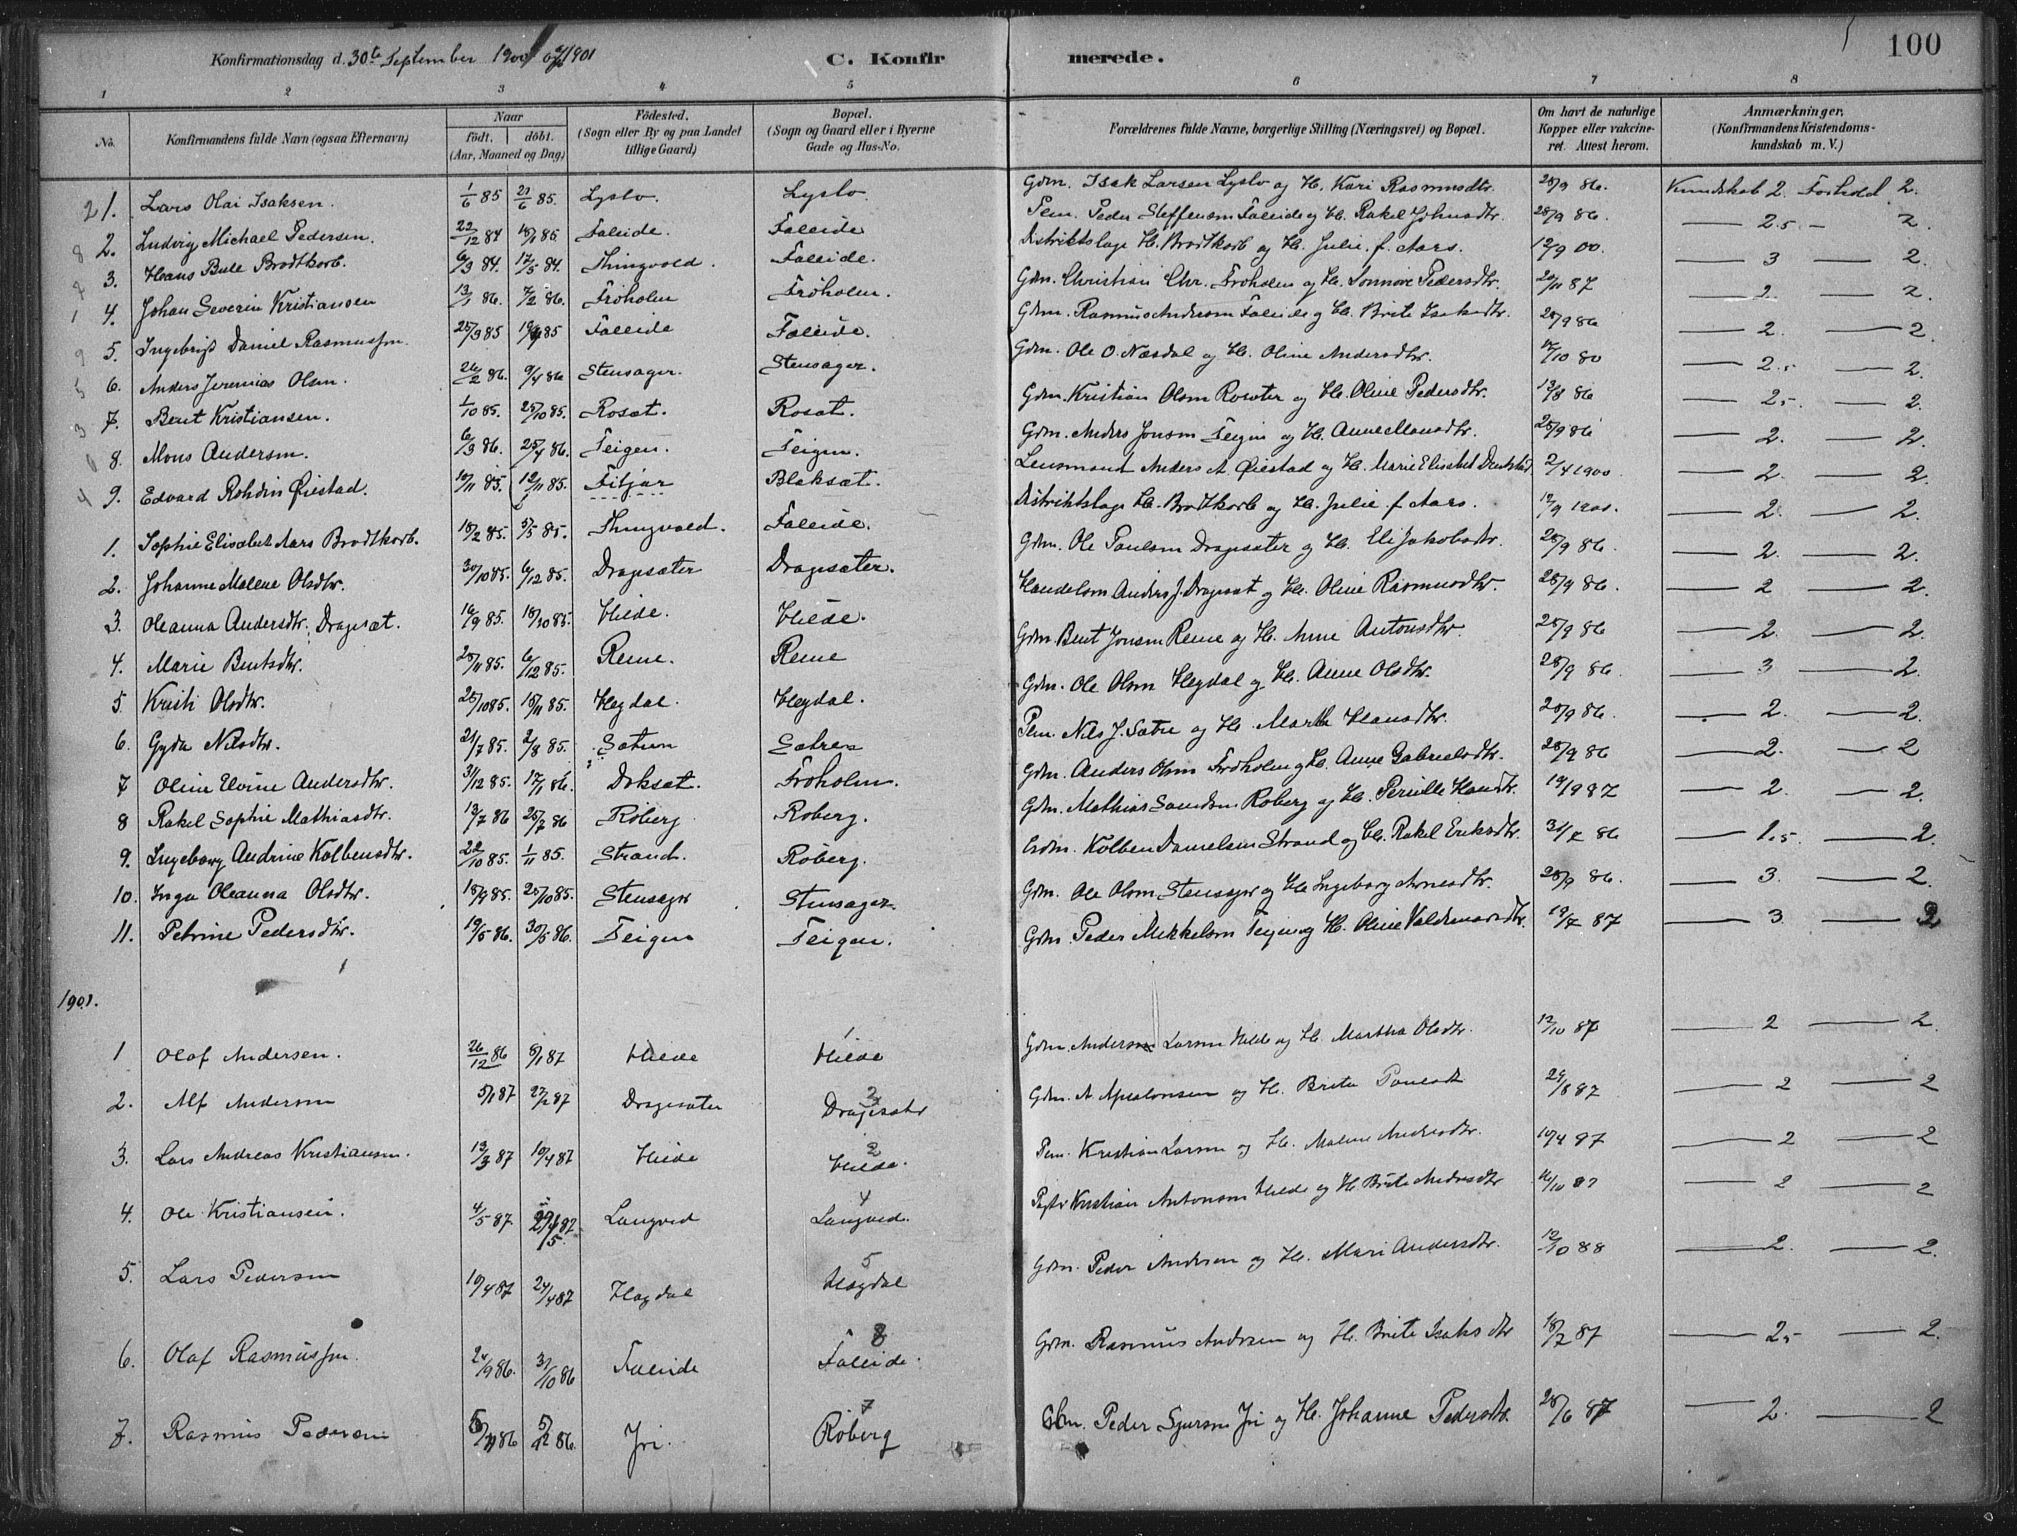 Konfirmationsdag d. 30te September 1900 og 1901 C. Konfirmerede. 100
1 2 3 4 5 6 7 8
No. Konfirmandens fulde Navn (ogsaa Efternavn) Naar födt. döbt. (Aar, Maaned og Dag) Födested. (Sogn eller By og paa Landet tillige Gaard) Bopæl. (Sogn og Gaard eller i Byerne Gade og Hus-No. Forældrenes fulde Navne, borgerlige Stilling (Næringsvei) og Bopæl. Om havt de naturlige Kopper eller vakcineret. Attest herom. Anmærkninger, (Konfirmandens Kristendomskundskab m. V.)
1. Lars Olai Isaksen. 1/6 85 21/6 85. Lyslo. Lyslo. Gdm. Isak Larsen Lyslo og H. Kari Rasmusdtr. 28/9 86. Kundskab 2. Forhold 2.
2. Ludvig Michael Pedersen. 22/12 84 18/1 85. Faleide. Faleide Pem. Peder Steffensen Faleide og H. Rakel Johnsdtr. 28/9 86. 2.5 — 2.
3. Hans Bule Brodtkorb. 6/3 84. 17/5 84. Thingvold. Faleide. Distriktslæge H. Brodtkorb og H. Julie f. Aars. 12/9 00. 3 — 2.
4. Johan Severin Kristiansen 13/1 86. 7/2 86. Fröholm Fröholm. Gdm. Christian Chr. Froholm og H. Sonnove Pedersdtr. 20/11 87 2 — 2.
5. Ingebrigt Daniel Rasmussen. 25/3 85 19/4 85 Faleide Faleide. Gdm. Rasmus Andersen Faleide og H. Brite Isaksdtr. 28/9 86 2. — 2.
6. Anders Jeremias Olsen. 26/2 86. 9/4 86 Stensager. Stensager. Gdm. Ole O. Næsdal og H. Oline Andersdtr. 12/10 80 2.5 — 2.
7. Bent Kristiansen. 1/10 85. 25/10 85. Rosæt. Rosæt. Gdm. Kristian Olsen Roseter og H. Oline Pedersdtr. 13/8 86 2.5 — 2.
8. Mons Andersen. 6/3 86. 25/4 86. Feigen. Feigen. Gdm. Anders Jonsen Feigen og H. Anne Monsdtr. 28/9 86 2. — 2.
9. Edvard Rohdin Øiestad. 10/11 85. 12/11 85. Fitjar Bleksæt. Lensmand Anders A. Øiestad og H. Marie Elisabet 2/4 1900 2. — 2.
1. Sophie Elisabet Aars Brodtkorb. 18/2 85. 5/5 85. Thingvold. Faleide. Distriktslæge H. Brodtkorb og H. Julie f. Aars. 12/9 1900. 2 — 2.
2. Johanne Malene Olsdtr. 30/10 85. 6/12 85. Dragesæter Dragesæter. Gdm. Ole Paulsen Dragesæter og H. Eli Jakobsdtr. 28/9 86. 2. — 2.
3. Oleanna Andersdtr. Dragesæt. 16/9 85. 18/10 85. Hilde. Hilde. Handelsm Anders J. Dragesæt og H. Oline Rasmusdtr. 28/9 86. 2 — 2.
4. Marie Bentsdtr. 28/11 85. 6/12 85. Reme. Reme Gdm. Bent Jonsen Reme og H. Anne Antonsdtr. 28/9 86 2. — 2.
5. Kristi Olsdtr. 25/10 85. 15/11 85. Hegdal. Hegdal. Gdm. Ole Olsen Hegdal og H. Anne Olsdtr. 28/9 86. 3 — 2.
6. Gyda Nilsdtr. 21/7 85. 2/8 85. Sætren Sætren Pem. Nils J. Sætre og H. Marthe Hansdtr. 28/9 86. 2. — 2.
7 Oline Elvine Andersdtr. 31/12 85. 17/1 86. Doksæt. Froholm. Gdm. Anders Olsen Fröholm og H. Anne Gabrielsdtr. 28/9 86 2. — 2
8 Rakel Sophie Mathiasdtr. 13/7 86 25/7 86 Röberg Roberg. Gdm. Mathias Roberg og H. Pernille Hansdtr. 19/9 87 2. — 2.
9. Ingeborg Andrine Kolbensdtr. 22/10 85. 1/11 85. Strand. Röberg. Gdm. Kolben Danielsen Strand og H. Rakel Eriksdtr. 31/7 86 1.5 — 2.
10. Inga Oleanna Olsdtr. 18/9 85. 25/10 85. Stensager Stensager. Gdm. Ole Olsen Stensager og H. Ingeborg Arnesdtr. 28/9 86. 3. — 2.
11. Petrine Pedersdtr. 19/5 86. 30/5 86. Feigen Feigen. Gdm. Peder Mekkelsen Feigen og H. Oline Valdemarsdtr. 19/7 87 3 — 2
1901.
1 Olaf Andersen. 26/12 86 8/1 87 Hilde Hilde Gdm. Anders Larsen Hilde og H. Martha Olsdtr. 12/10 87 2 — 2.
2. Alf Andersen 5/1 87 27/2 87 Dragesæter Dragesætr Gdm. A Apselonsen og H. Brita 29/8 87 2 — 2
3. Lars Andreas Kristiansen. 13/3 87 10/4 87 Hilde Hilde. Pem. Kristian Larsen og H. Malene Andersdtr. 10/4 97 2 — 2
4. Ole Kristiansen. 4/5 87 Langved Langved. Kristian Antonsen Hilde og H. Brite Andersdtr 2 — 2
5. Lars Pedersen 10/4 87 24/4 87 Hægdal Hægdal Gdm. Peder Andersen og H. Mari Andersdtr. 12/10 88 2. — 2.
6. Olaf Rasmussen. 2/9 86. 31/10 86 Faleide Faleide. Gdm. Rasmus Andersen og H. Brite Isaksdtr 18/7 87 2.5 — 2.
7. Rasmus Pedersen 5/12 86. Iri. Röberg Peder Sjursen Iri og H. Johanne Pedersdtr. 28/6 87 2. — 2